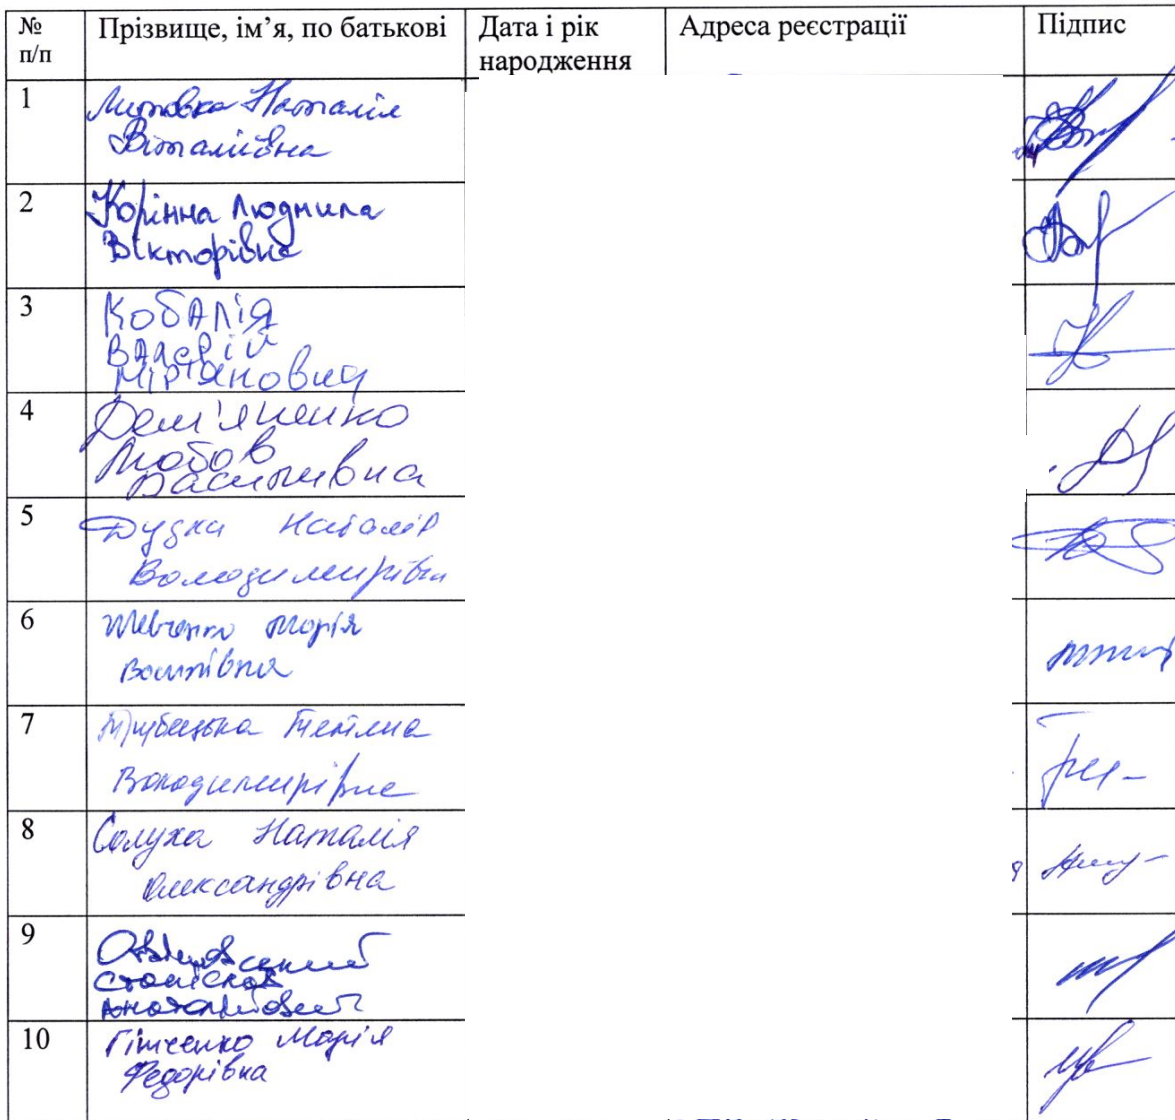 № п/п Прізвище, ім’я, по батькові Дата і рік народження Адреса реєстрації Підпис
1 Литовка Наталія
Віталіївна
2 Корінна Людмила
Вікторівна
3 Кобалія
Валерій
Міріянович
4 Дем'яненко
Любов
Василівна
5 Дудка Наталія
Володимирівна
6 Шевченко Марія
Василівна
7 Трубецька Тетяна
Володимирівна
8 Солуха Наталія
Олександрівна
9
Станіслав
Анатолійович
10 Гітченко Марія
Федорівна